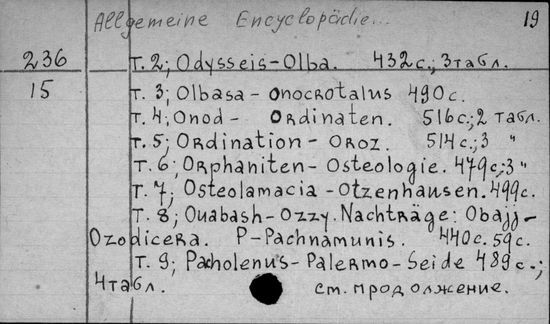 Allgemeine Encyclopädie... 19
236 т. 2; Odysseis-Olba. 432с.; 3табл.
15 т. 3; Olbasa - Onocrotalus 490с.
т. 4; Onod - Ordinaten. 516с.; 2 табл.
т. 5; Ordination - Oroz. 514с.; 3 "
т. 6; Orphaniten - Osteologie. 479с; 3"
т. 7; Osteolamacia - Otzenhausen. 499с.
т. 8; Ouabash - Ozzy. Nachträge: Obajj-
Ozodicera. P-Pachnamunis. 440с. 59с.
т. 9; Pacholenus - Palermo-Seide 489с.;
4табл. см. продолжение.